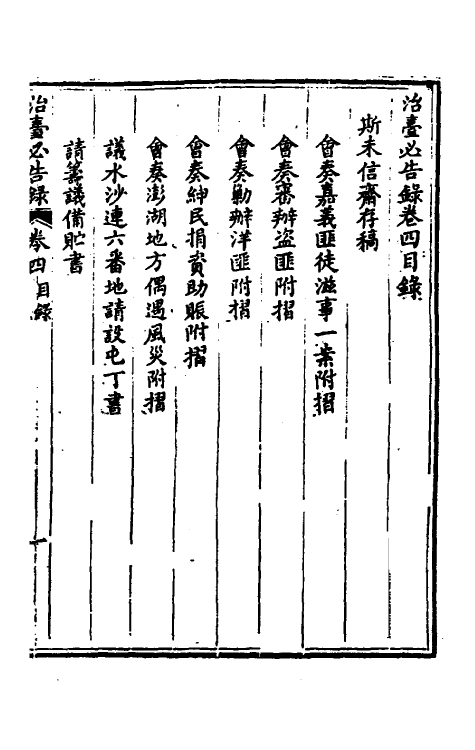 治臺必告錄卷四目錄
斯未信齋存稿
會奏嘉義匪徒滋事一案附摺
會奏審辦盜匪附摺
會奏勦辦洋匪附摺
會奏紳民捐資助賑附摺
會奏澎湖地方偶遇風災附摺
議水沙連六番地請設屯丁書
請籌議備貯書
治臺必告錄 卷四目錄 一